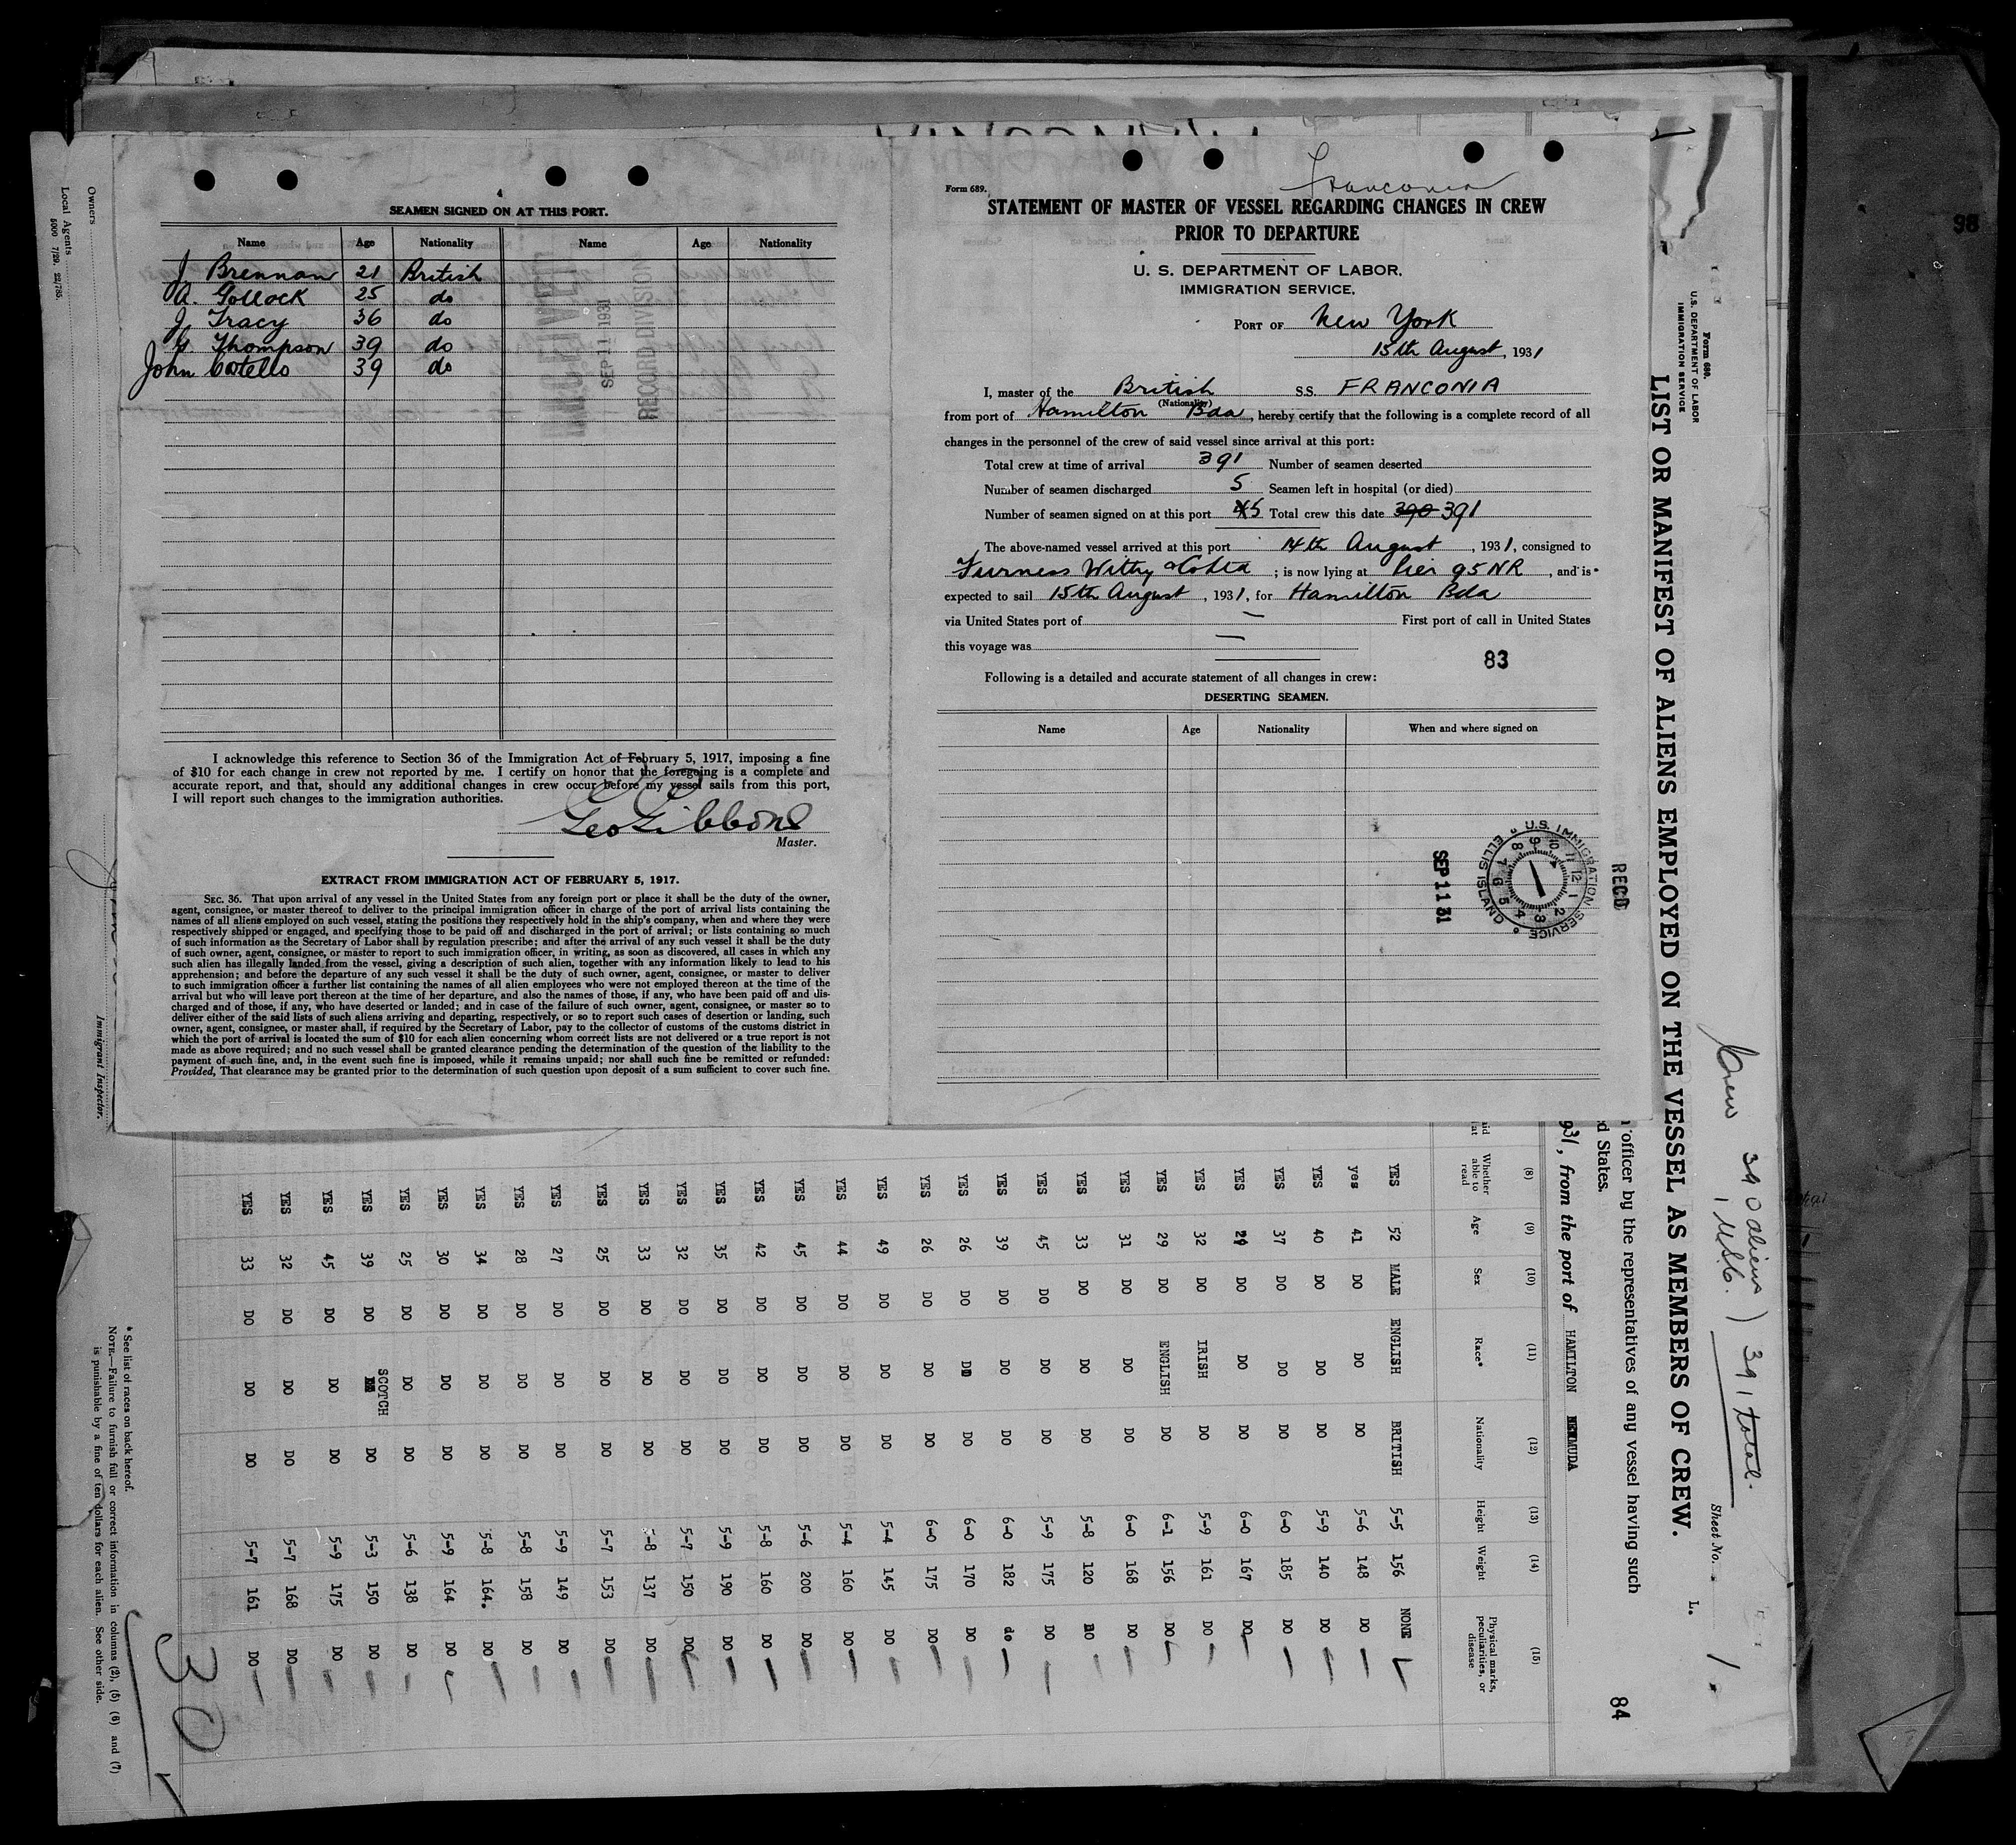 4
SEAMEN SIGNED ON AT THIS PORT.
Name Age Nationality Name Age Nationality
J Brennan 21 British
A. Gollock 25 do
J. Tracy 36 do
G. Thompson 39 do
John Cotello 39 do
SEP 11 1931
RECORD DIVISION
I acknowledge this reference to Section 36 of the Immigration Act of February 5, 1917, imposing a fine
of $10 for each change in crew not reported by me. I certify on honor that the foregoing is a complete and
accurate report, and that, should any additional changes in crew occur before my vessel sails from this port,
I will report such changes to the immigration authorities.
Geo Gibbons
Master.
EXTRACT FROM IMMIGRATION ACT OF FEBRUARY 5, 1917.
SEC. 36. That upon arrival of any vessel in the United States from any foreign port or place it shall be the duty of the owner,
agent, consignee, or master thereof to deliver to the principal immigration officer in charge of the port of arrival lists containing the
names of all aliens employed on such vessel, stating the positions they respectively hold in the ship's company, when and where they were
respectively shipped or engaged, and specifying those to be paid off and discharged in the port of arrival; or lists containing so much
of such information as the Secretary of Labor shall by regulation prescribe; and after the arrival of any such vessel it shall be the duty
of such owner, agent, consignee, or master to report to such immigration officer, in writing, as soon as discovered, all cases in which any
such alien has illegally landed from the vessel, giving a description of such alien, together with any information likely to lead to his
apprehension; and before the departure of any such vessel it shall be the duty of such owner, agent, consignee, or master to deliver
to such immigration officer a further list containing the names of all alien employees who were not employed thereon at the time of the
arrival but who will leave port thereon at the time of her departure, and also the names of those, if any, who have been paid off and dis-
charged and of those, if any, who have deserted or landed; and in case of the failure of such owner, agent, consignee, or master so to
deliver either of the said lists of such aliens arriving and departing, respectively, or so to report such cases of desertion or landing, such
owner, agent, consignee, or master shall, if required by the Secretary of Labor, pay to the collector of customs of the customs district in
which the port of arrival is located the sum of $10 for each alien concerning whom correct lists are not delivered or a true report is not
made as above required; and no such vessel shall be granted clearance pending the determination of the question of the liability to the
payment of such fine, and, in the event such fine is imposed, while it remains unpaid; nor shall such fine be remitted or refunded:
Provided, That clearance may be granted prior to the determination of such question upon deposit of a sum sufficient to cover such fine.
Form 689.
Franconia
STATEMENT OF MASTER OF VESSEL REGARDING CHANGES IN CREW
PRIOR TO DEPARTURE
U. S. DEPARTMENT OF LABOR,
IMMIGRATION SERVICE,
PORT OF New York
15th August, 1931
I, master of the British SS. FRANCONIA
(Nationality)
from port of Hamilton Bda, hereby certify that the following is a complete record of all
changes in the personnel of the crew of said vessel since arrival at this port:
Total crew at time of arrival 391 Number of seamen deserted
Number of seamen discharged 5 Seamen left in hospital (or died)
Number of seamen signed on at this port 5 Total crew this date 390 391
The above-named vessel arrived at this port 14th August, 1931, consigned to
Furness Withy & Co Ltd; is now lying at Pier 95 NR, and is
expected to sail 15th August, 1931, for Hamilton Bda
via United States port of — First port of call in United States
this voyage was —
83
Following is a detailed and accurate statement of all changes in crew:
DESERTING SEAMEN.
Name Age Nationality When and where signed on
RECD
U.S. IMMIGRATION SERVICE ELLIS ISLAND
1 2 3 4 5 6 7 8 9 10 11 12
SEP 11 31
98
Form 689.
U.S. DEPARTMENT OF LABOR
IMMIGRATION SERVICE
Crew 390 aliens ) 391 total.
1 USC.
Sheet No. 1.
L.
LIST OR MANIFEST OF ALIENS EMPLOYED ON THE VESSEL AS MEMBERS OF CREW.
officer by the representatives of any vessel having such
d States.
84
931, from the port of HAMILTON BERMUDA
(8) (9) (10) (11) (12) (13) (14) (15)
Whether able to read Age Sex Race* Nationality Height Weight Physical marks, peculiarities, or disease
YES 52 MALE ENGLISH BRITISH 5-5 156 NONE
yes 41 DO DO DO 5-6 148 DO
YES 40 DO DO DO 5-9 140 DO
YES 37 DO DO DO 6-0 185 DO
YES DO DO DO 6-0 167 DO
YES 32 DO IRISH DO 5-9 161 DO
YES 29 DO ENGLISH DO 6-1 156 DO
YES 31 DO DO DO 6-0 168 DO
YES 33 DO DO DO 5-8 120 DO
YES 45 DO DO DO 5-9 175 DO
YES 39 DO DO DO 6-0 182 do
YES 26 DO DO DO 6-0 170 DO
YES 26 DO DO DO 6-0 175 DO
YES 49 DO DO DO 5-4 145 DO
YES 44 DO DO DO 5-4 160 DO
YES 45 DO DO DO 5-6 200 DO
YES 42 DO DO DO 5-8 160 DO
YES 35 DO DO DO 5-9 190 DO
YES 32 DO DO DO 5-7 150 DO
YES 33 DO DO DO 5-8 137 DO
YES 25 DO DO DO 5-7 153 DO
YES 27 DO DO DO 5-9 149 DO
YES 28 DO DO DO 5-8 158 DO
YES 34 DO DO DO 5-8 164. DO
YES 30 DO DO DO 5-9 164 DO
YES 25 DO DO DO 5-6 138 DO
YES 39 DO SCOTCH DO 5-3 150 DO
YES 45 DO DO DO 5-9 175 DO
YES 32 DO DO DO 5-7 168 DO
YES 33 DO DO DO 5-7 161 DO
30
* See list of races on back hereof.
NOTE.—Failure to furnish full or correct information in columns (2), (5) (6) and (7)
is punishable by a fine of ten dollars for each alien. See other side.
Immigrant Inspector.
Owners
Local Agents
5000 7/29. 22/785.